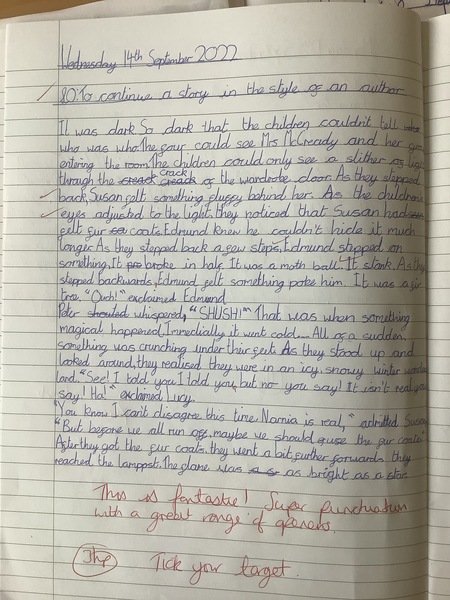 Wednesday 14th September 2022
LO: To continue a story in the style of an author
It was dark. So dark that the children couldn't tell
who was who. The four could see Mrs McCready and her
entering the room. The children could only see a slither of
through the creack crack creack of the wardrobe door. As they stepped
back, Susan felt something fluffy behind her. As the children's
eyes adjusted to the light, they noticed that Susan had
felt fur coats. Edmund knew he couldn't hide it much
longer. As they stepped back a few steps, Edmund stepped on
something. It broke in half. It was a moth ball. It stank. As they
stepped backwards, Edmund felt something poke him. It was a fir
tree. "Ouch!" exclaimed Edmund.
Peter shouted whispered, "SHUSH!" That was when something
magical happened. Immedially it went cold... All of a sudden,
something was crunching under their feet. As they stood up and
looked around, they realised they were in an icy, snowy winter wonder
land. "See! I told you I told you, but no you say! It isn't real you
say! Ha!" exclaimed Lucy.
"You know I can't disagree this time. Narnia is real," admitted Susan
"But before we all run off, maybe we should use the fur coats"
After they got the fur coats, they went a bit further forwards they
reached the lamppost. The flame was as bright as a star.
This is fantastic! Super punctuation
with a great range of openers.
3hp Tick your target.